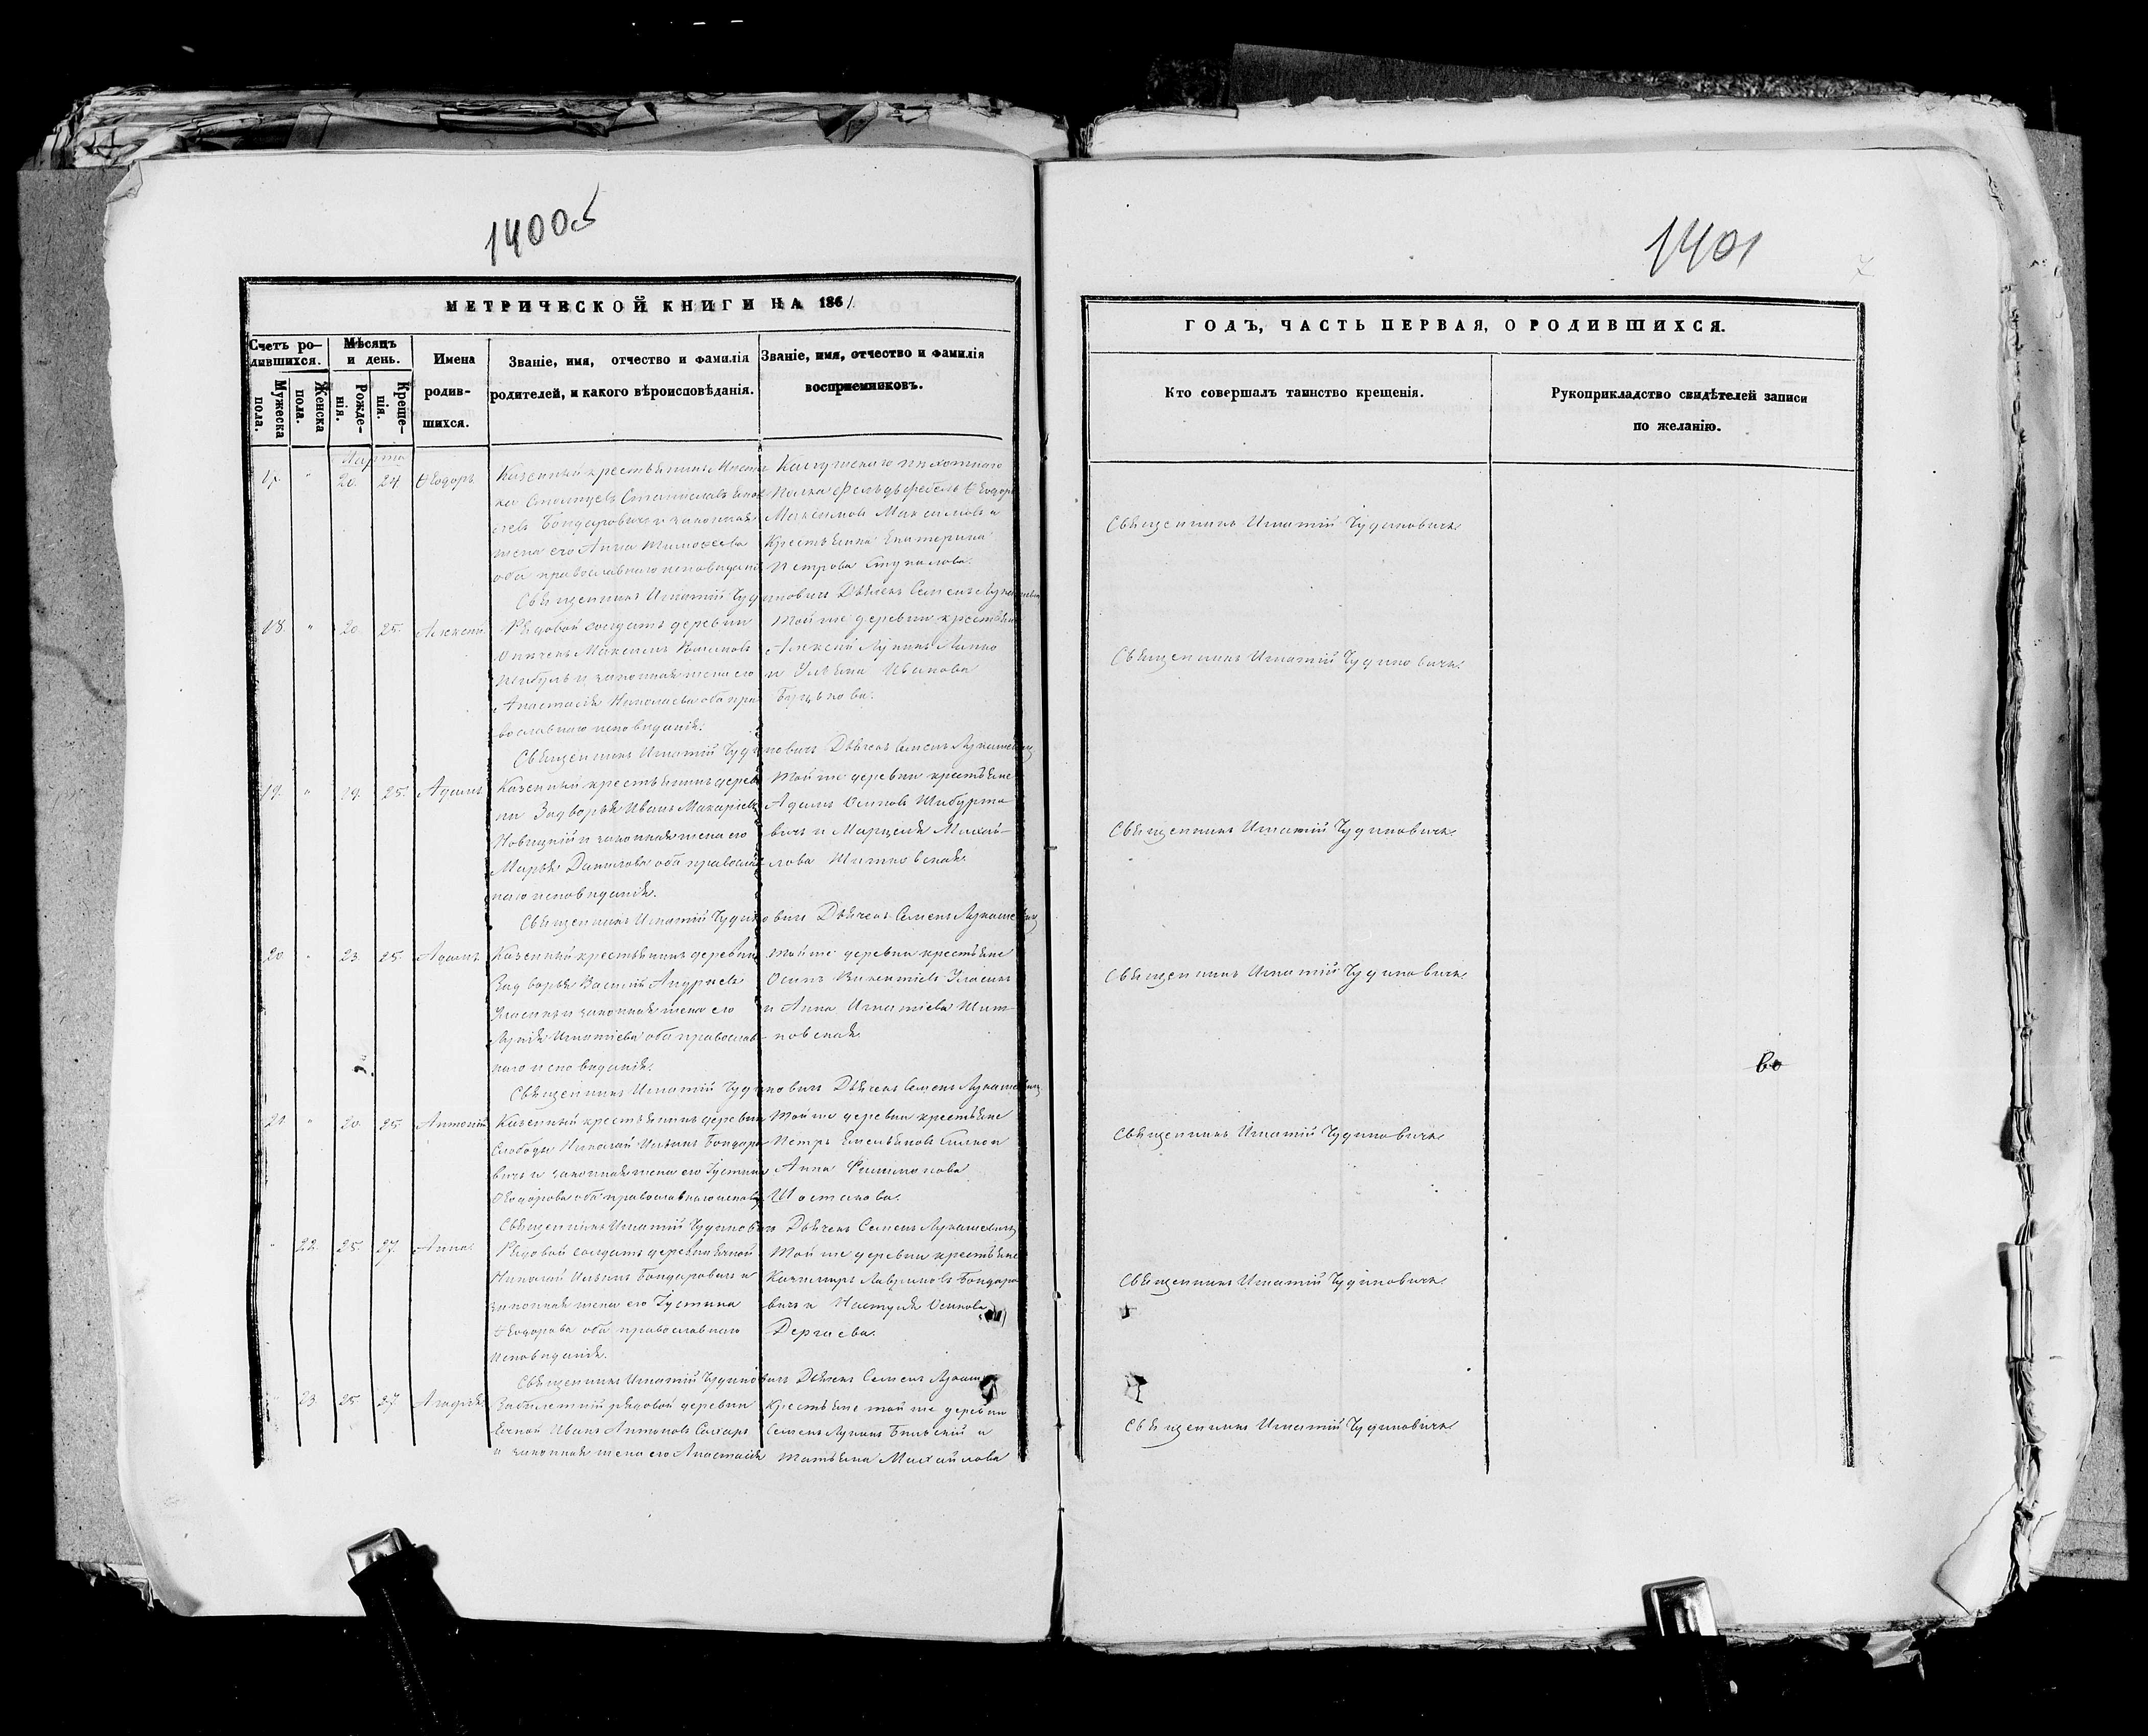 1400об
1401
МЕТРИЧЕСКОЙ КНИГИ НА 1861
Счетъ ро-
дившихся.
Мужеска
пола.
Женска
пола.
Мѣсяцъ
и день.
Рожде-
нія.
Креще-
нія.
Имена
родив-
шихся.
Званіе, имя, отчество и фамилія
родителей, и какого вѣроисповѣданія.
Званіе, имя, отчество и фамилія
воспріемниковъ.
ГОДЪ, ЧАСТЬ ПЕРВАЯ, О РОДИВШИХСЯ.
Кто совершалъ таинство крещенія.
Рукоприкладство свидѣтелей записи
по желанію.
Марта
17. " 20. 24. Ѳеодоръ
Казенный крестьянинъ
Станиславъ
Бондаровичъ и законная
жена его Анна Тимоѳеева
оба православнаго исповѣданія
Калужскаго пѣхотнаго
полка фельдфебель Ѳеодоръ
Максимовъ Максимовъ и
крестьянка Екатерина
Петрова
Священникъ Игнатій Чудиновичъ
Священникъ Игнатій Чудиновичъ Дьячекъ Семенъ Лукашевичъ
18. " 20. 25. Алексѣй
Рядовой солдатъ деревни
Максимъ
и законная жена его
Анастасія Николаева оба пра
вославнаго исповѣданія.
Той же деревни крестьяне
Алексѣй Лукинъ
и Ульяна Иванова
Священникъ Игнатій Чудиновичъ
Священникъ Игнатій Чудиновичъ Дьячекъ Семенъ Лукашевичъ
19. " 19. 25. Адамъ
Казенный крестьянинъ дерев
ни Задворья Иванъ Макаріевъ
Новицкій и законная жена его
Марья Данилова оба православ
наго исповѣданія.
Той же деревни крестьяне
Адамъ Осиповъ Шибурто
вичъ и Марцеля Михай-
лова Шитковская.
Священникъ Игнатій Чудиновичъ
Священникъ Игнатій Чудиновичъ Дьячекъ Семенъ Лукашевичъ
20 " 23. 25. Адамъ
Казенный крестьянинъ деревни
Задворья Василій Андреевъ
и законная жена его
Игнатіева оба православ
наго исповѣданія.
Той же деревни крестьяне
Осипъ Викентіевъ
и Анна Игнатіева Шит-
ковская.
Священникъ Игнатій Чудиновичъ
во
Священникъ Игнатій Чудиновичъ Дьячекъ Семенъ Лукашевичъ
21 " 20. 25. Антоній
Казенный крестьянинъ деревни
Слободы Николай Ильинъ Бондаро
вичъ и законная жена его Густина
Ѳеодорова оба православнаго исповѣд
Той же деревни крестьяне
Петръ Емельяновъ
Анна Филимонова
Шостакова.
Священникъ Игнатій Чудиновичъ
Священникъ Игнатій Чудиновичъ Дьячекъ Семенъ Лукашевичъ
" 22. 25. 27. Анна
Рядовой солдатъ деревни Ячной
Николай Ильинъ Бондаровичъ и
законная жена его Густина
Ѳеодорова оба православнаго
исповѣданія.
Той же деревни крестьяне
Казимиръ Бондаро
вичъ и Настуля Осипова
Дергаева.
Священникъ Игнатій Чудиновичъ
Священникъ Игнатій Чудиновичъ Дьячекъ Семенъ Лукашевичъ
" 23. 25. 27.
рядовой деревни
Ячной Иванъ Антоновъ
и законная жена его Анастасія
Крестьяне той же деревни
Семенъ Лукинъ Бѣльскій и
Татьяна Михайлова
Священникъ Игнатій Чудиновичъ